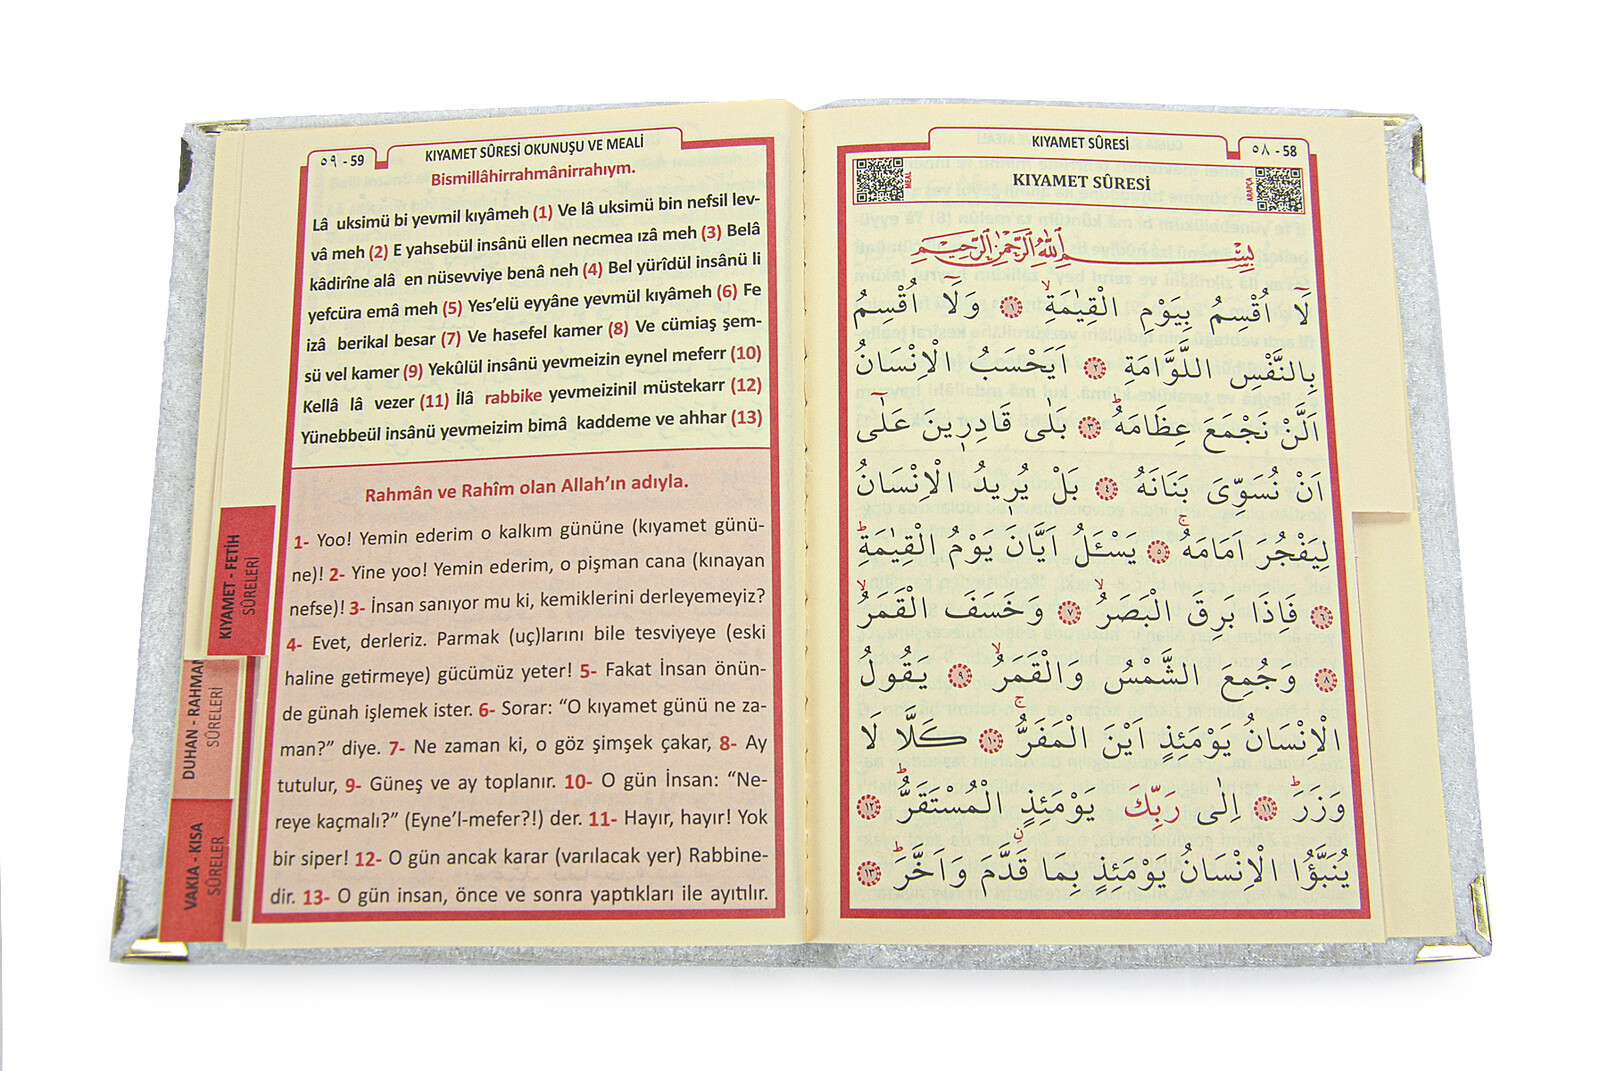 ٥٩ - 59
KIYAMET SÛRESİ OKUNUŞU VE MEALİ
Bismillâhirrahmânirrahıym.
Lâ uksimü bi yevmil kıyâmeh (1) Ve lâ uksimü bin nefsil lev-
vâ meh (2) E yahsebül insânü ellen necmea ızâ meh (3) Belâ
kâdirîne alâ en nüsevviye benâ neh (4) Bel yürîdül insânü li
yefcüra emâ meh (5) Yes'elü eyyâne yevmül kıyâmeh (6) Fe
izâ berikal besar (7) Ve hasefel kamer (8) Ve cümiaş şem-
sü vel kamer (9) Yekûlül insânü yevmeizin eynel meferr (10)
Kellâ lâ vezer (11) İlâ rabbike yevmeizinil müstekarr (12)
Yünebbeül insânü yevmeizim bimâ kaddeme ve ahhar (13)
Rahmân ve Rahîm olan Allah'ın adıyla.
1- Yoo! Yemin ederim o kalkım gününe (kıyamet günü-
ne)! 2- Yine yoo! Yemin ederim, o pişman cana (kınayan
nefse)! 3- İnsan sanıyor mu ki, kemiklerini derleyemeyiz?
4- Evet, derleriz. Parmak (uç)larını bile tesviyeye (eski
haline getirmeye) gücümüz yeter! 5- Fakat İnsan önün-
de günah işlemek ister. 6- Sorar: “O kıyamet günü ne za-
man?” diye. 7- Ne zaman ki, o göz şimşek çakar, 8- Ay
tutulur, 9- Güneş ve ay toplanır. 10- O gün İnsan: “Ne-
reye kaçmalı?” (Eyne'l-mefer?!) der. 11- Hayır, hayır! Yok
bir siper! 12- O gün ancak karar (varılacak yer) Rabbine-
dir. 13- O gün insan, önce ve sonra yaptıkları ile ayıtılır.
KIYAMET - FETİH
SÛRELERİ
DUHAN - RAHMAN
SÛRELERİ
VAKIA - KISA
SÛRELER
KIYAMET SÛRESİ
٥٨ - 58
MEAL
KIYAMET SÛRESİ
ARAPÇA
بِسْمِ اللّٰهِ الرَّحْمٰنِ الرَّحِيمِ
لَٓا اُقْسِمُ بِيَوْمِ الْقِيٰمَةِۙ ﴿١﴾ وَلَٓا اُقْسِمُ
بِالنَّفْسِ اللَّوَّامَةِ ﴿٢﴾ اَيَحْسَبُ الْاِنْسَانُ
اَلَّنْ نَجْمَعَ عِظَامَهُۜ ﴿٣﴾ بَلٰى قَادِر۪ينَ عَلٰٓى
اَنْ نُسَوِّيَ بَنَانَهُ ﴿٤﴾ بَلْ يُر۪يدُ الْاِنْسَانُ
لِيَفْجُرَ اَمَامَهُۚ ﴿٥﴾ يَسْـَٔلُ اَيَّانَ يَوْمُ الْقِيٰمَةِۜ
﴿٦﴾ فَاِذَا بَرِقَ الْبَصَرُۙ ﴿٧﴾ وَخَسَفَ الْقَمَرُۙ
﴿٨﴾ وَجُمِعَ الشَّمْسُ وَالْقَمَرُۙ ﴿٩﴾ يَقُولُ
الْاِنْسَانُ يَوْمَئِذٍ اَيْنَ الْمَفَرُّۚ ﴿١٠﴾ كَلَّا لَا
وَزَرَۜ ﴿١١﴾ اِلٰى رَبِّكَ يَوْمَئِذٍ ۨالْمُسْتَقَرُّۜ ﴿١٢﴾
يُنَبَّؤُا الْاِنْسَانُ يَوْمَئِذٍ بِمَا قَدَّمَ وَاَخَّرَۜ ﴿١٣﴾